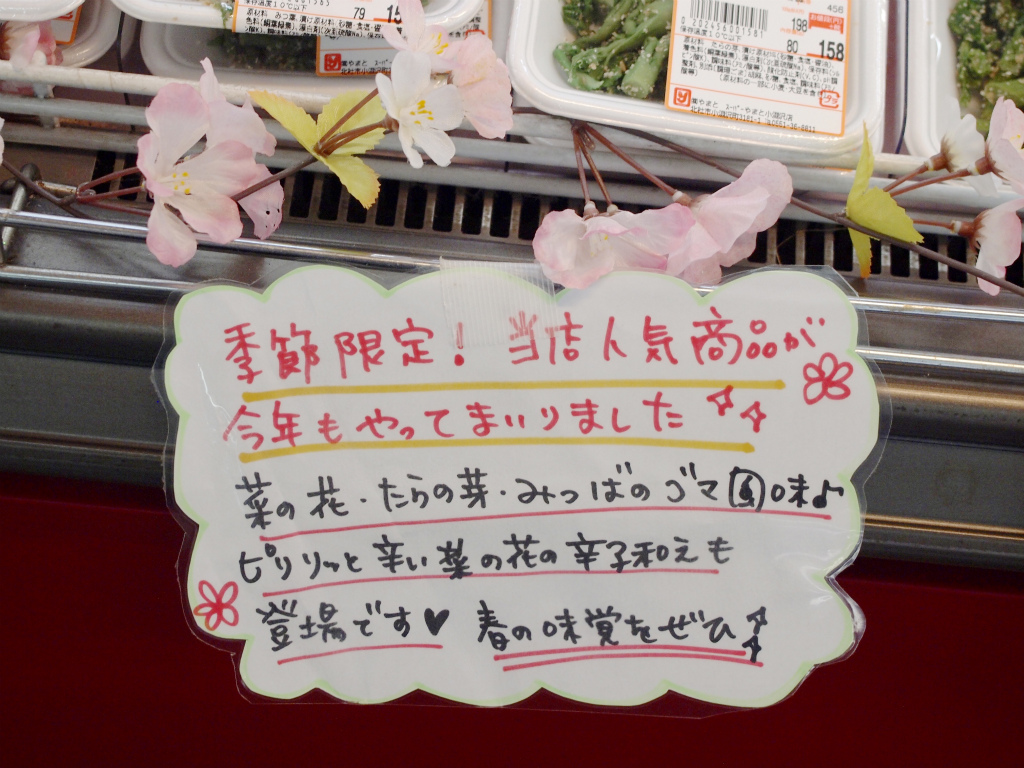 79
456
0202456001581
198
80
158
保存温度10℃以下
季節限定！ 当店人気商品が
今年もやってまいりました
菜の花・たらの芽・みつばのゴマ風味♪
ピリリッと辛い菜の花の辛子和えも
登場です♥ 春の味覚をぜひ